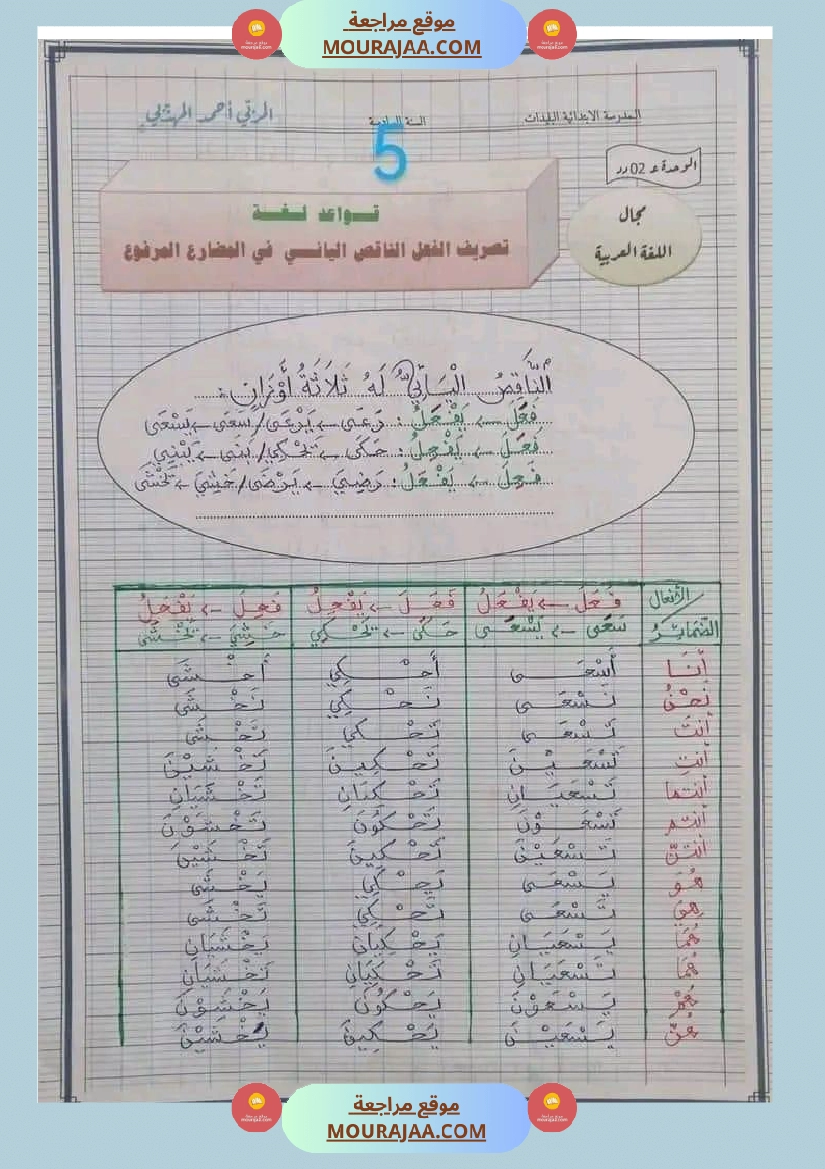 موقع مراجعة
MOURAJAA.COM
المدرسة الابتدائية البليدات
السنة السادسة
المربّي أحمد المهذبي
5
الوحدة ع 02 دد
مجال
اللغة العربية
قواعد لغة
تصريف الفعل الناقص اليائي في المضارع المرفوع
النَّاقِصُ الْيَائِيُّ لَهُ ثَلَاثَةُ أَوْزَانٍ:
فَعَلَ -> يَفْعَلُ: رَعَى -> يَرْعَى / سَعَى -> يَسْعَى
فَعَلَ -> يَفْعِلُ: حَكَى -> يَحْكِي / بَنَى -> يَبْنِي
فَعِلَ -> يَفْعَلُ: رَضِيَ -> يَرْضَى / خَشِيَ -> يَخْشَى
الأفعال فَعَلَ -> يَفْعَلُ فَعَلَ -> يَفْعِلُ فَعِلَ -> يَفْعَلُ
الضمائر سَعَى -> يَسْعَى حَكَى -> يَحْكِي خَشِيَ -> يَخْشَى
أَنَا أَسْعَى أَحْكِي أَخْشَى
نَحْنُ نَسْعَى نَحْكِي نَخْشَى
أَنْتَ تَسْعَى تَحْكِي تَخْشَى
أَنْتِ تَسْعَيْنَ تَحْكِينَ تَخْشَيْنَ
أَنْتُمَا تَسْعَيَانِ تَحْكِيَانِ تَخْشَيَانِ
أَنْتُمْ تَسْعَوْنَ تَحْكُونَ تَخْشَوْنَ
أَنْتُنَّ تَسْعَيْنَ تَحْكِينَ تَخْشَيْنَ
هُوَ يَسْعَى يَحْكِي يَخْشَى
هِيَ تَسْعَى تَحْكِي تَخْشَى
هُمَا يَسْعَيَانِ يَحْكِيَانِ يَخْشَيَانِ
هُمَا تَسْعَيَانِ تَحْكِيَانِ تَخْشَيَانِ
هُمْ يَسْعَوْنَ يَحْكُونَ يَخْشَوْنَ
هُنَّ يَسْعَيْنَ يَحْكِينَ يَخْشَيْنَ
موقع مراجعة
MOURAJAA.COM